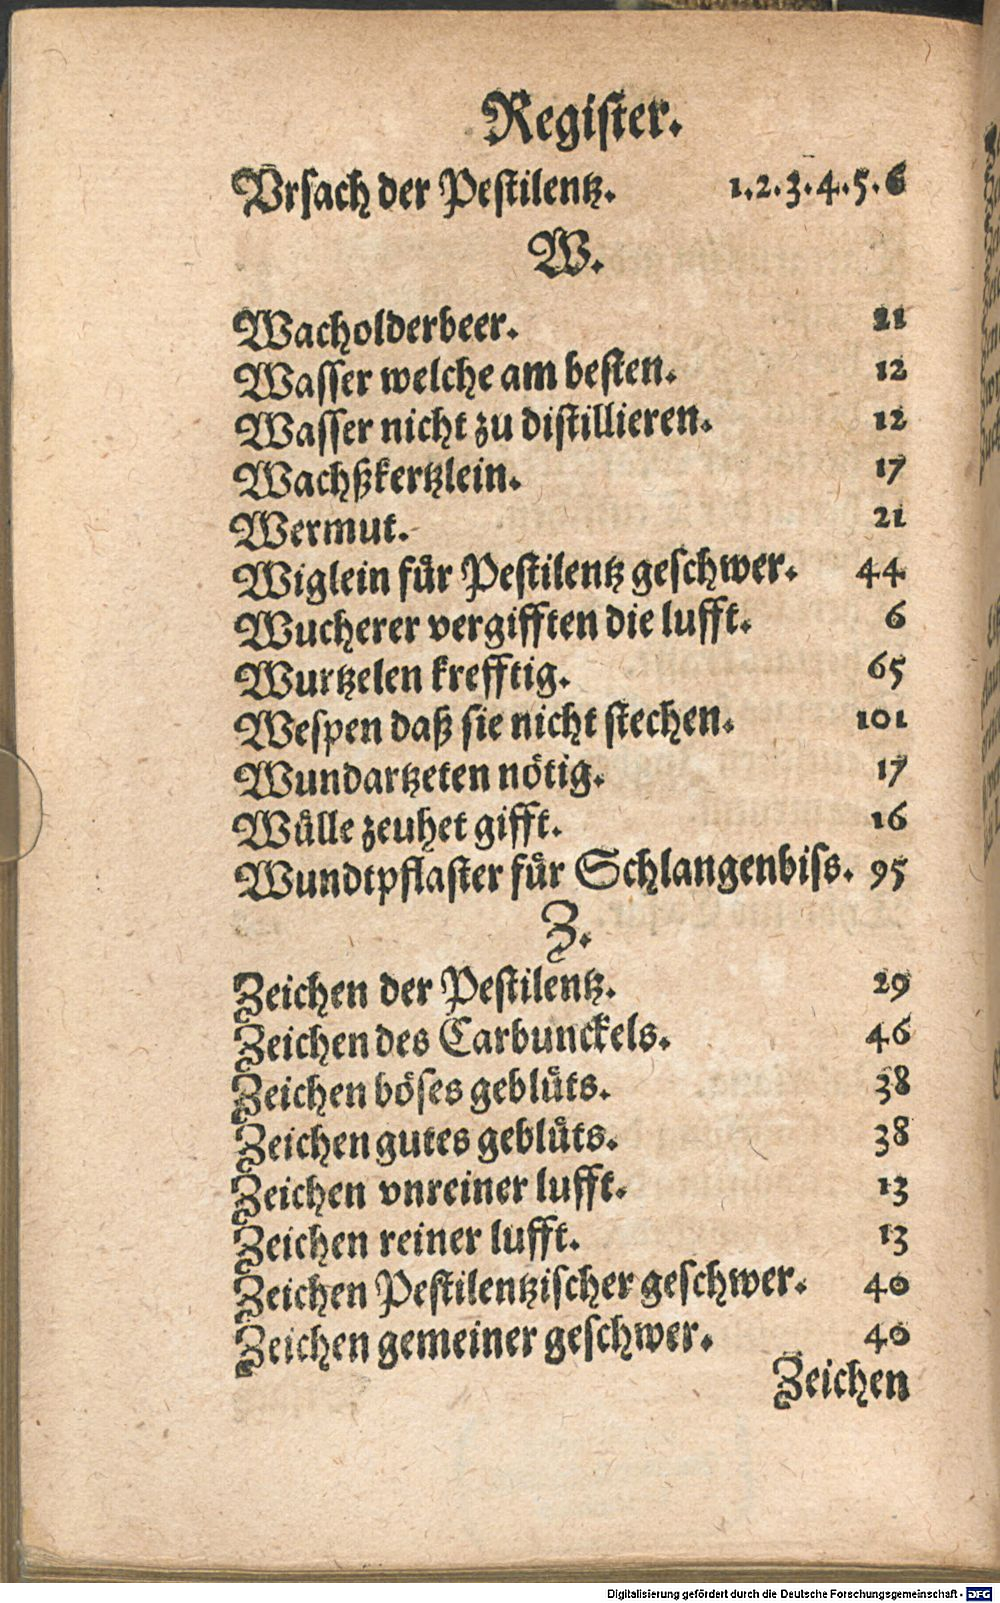 Regiſter.
Vrſach der Peſtilentz. 1.2.3.4.5.6
W.
Wacholderbeer. 21
Waſſer welche am beſten. 12
Waſſer nicht zu diſtillieren. 12
Wachßkertzlein. 17
Wermut. 21
Wiglein fuͤr Peſtilentz geſchwer. 44
Wucherer vergifften die lufft. 6
Wurtzelen krefftig. 65
Weſpen daß ſie nicht ſtechen. 101
Wundartzeten noͤtig. 17
Wuͤlle zeuhet gifft. 16
Wundtpflaſter fuͤr Schlangenbiſs. 95
Z.
Zeichen der Peſtilentz. 29
Zeichen des Carbunckels. 46
Zeichen boͤſes gebluͤts. 38
Zeichen gutes gebluͤts. 38
Zeichen vnreiner lufft. 13
Zeichen reiner lufft. 13
Zeichen Peſtilentziſcher geſchwer. 40
Zeichen gemeiner geſchwer. 40
Zeichen
Digitalisierung gefördert durch die Deutsche Forschungsgemeinschaft - DFG